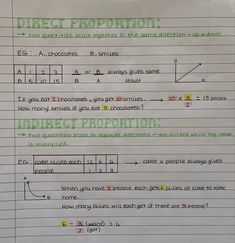 DIRECT PROPORTION:
→ two quantities scale together in the same direction - up or down.
EG: A. chocolates B. smiles
A 1 2 3
B 5 10 15
A/B or B/A always gives same result
y
x
If you eat 2 chocolates, you get 10 smiles.
How many smiles if you eat 3 chocolates?
10 × 3/2 = 15 smiles
INDIRECT PROPORTION:
→ two quantities scale in opposite directions - one divided while the other is multiplied.
EG: cake slices each 12 6 4
people 1 2 3
→ cake × people always gives
A
B
When you have 2 people each gets 6 slices of cake to take home.
How many slices will each get if there are 3 people?
6 ÷ 3/2 (want)/(got) = 4